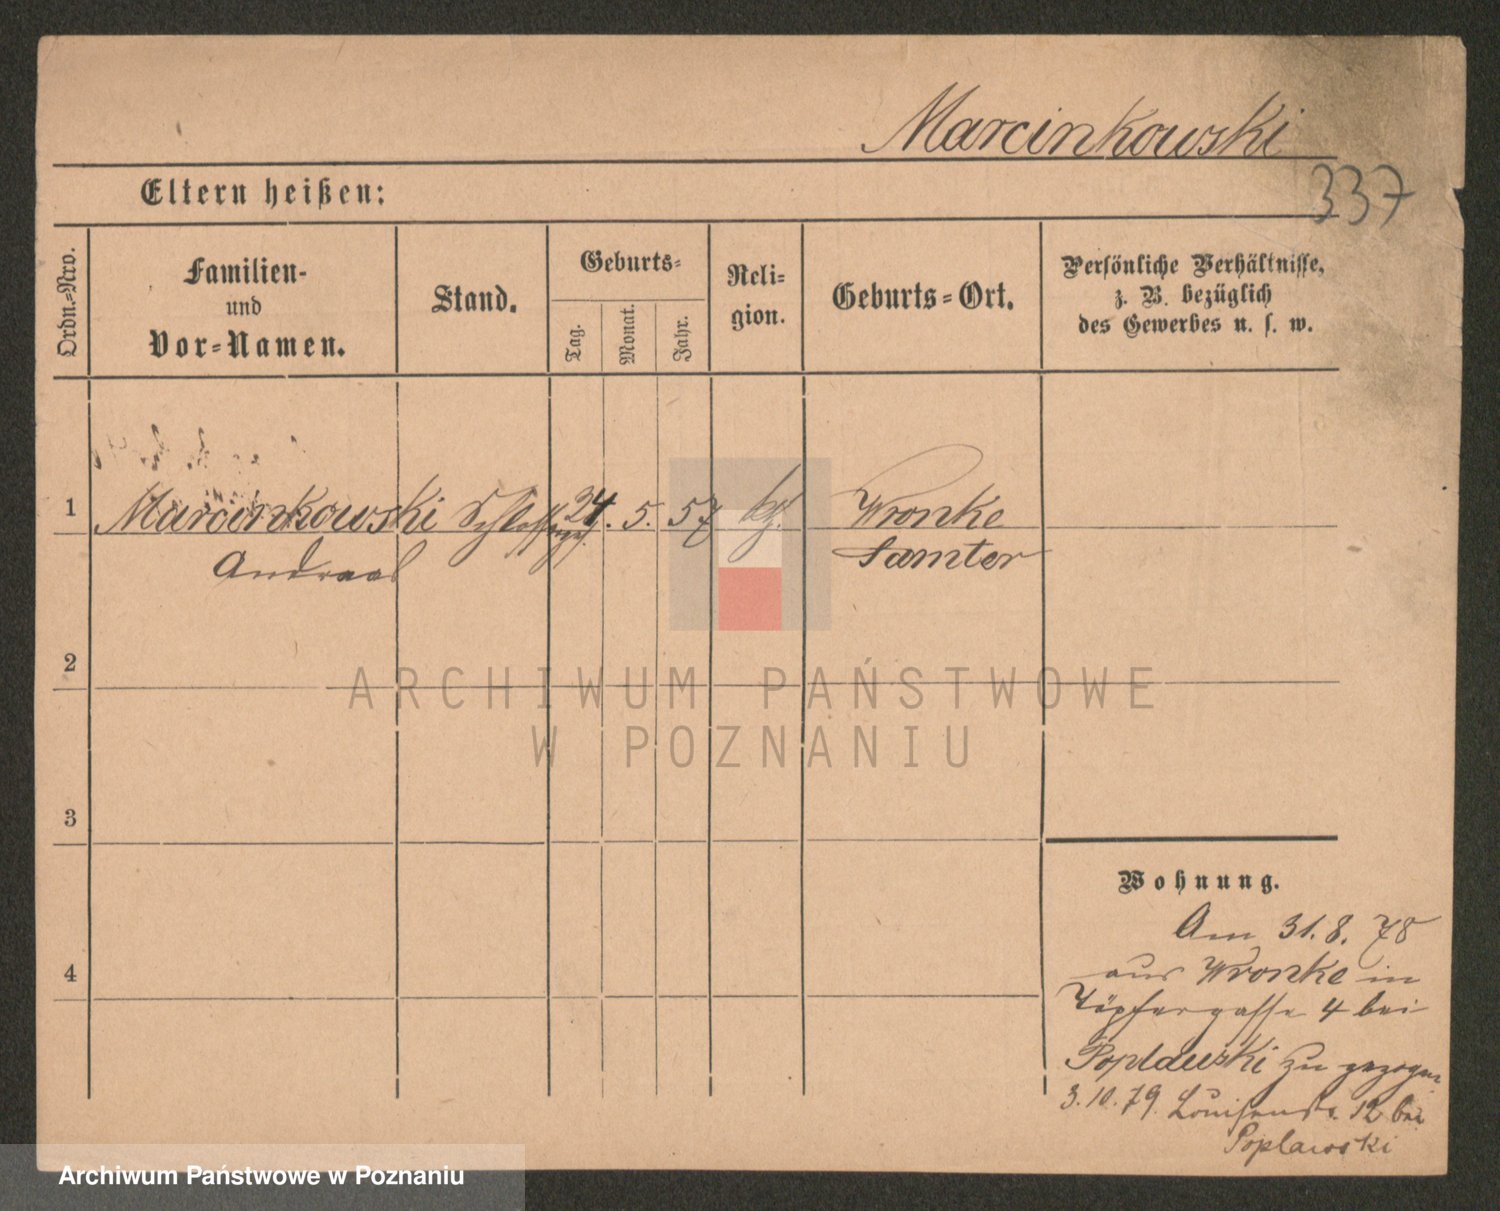 Marcinkowski
337
Eltern heißen:
Ordn.-Nro.
Familien-
und
Vor-Namen.
Stand.
Geburts-
Tag.
Monat.
Jahr.
Reli-
gion.
Geburts-Ort.
Persönliche Verhältnisse,
z. B. bezüglich
des Gewerbes u. s. w.
1 Marcinkowski 24. 5. 57 Wronke
Andreas Samter
2
ARCHIWUM PAŃSTWOWE
W POZNANIU
3
Wohnung.
Am 31. 8. 78
aus Wronke in
4
Töpfergasse 4 bei
Poplawski zu gezogen
3. 10. 79. Louisenstr. 12 bei
Poplawski
Archiwum Państwowe w Poznaniu